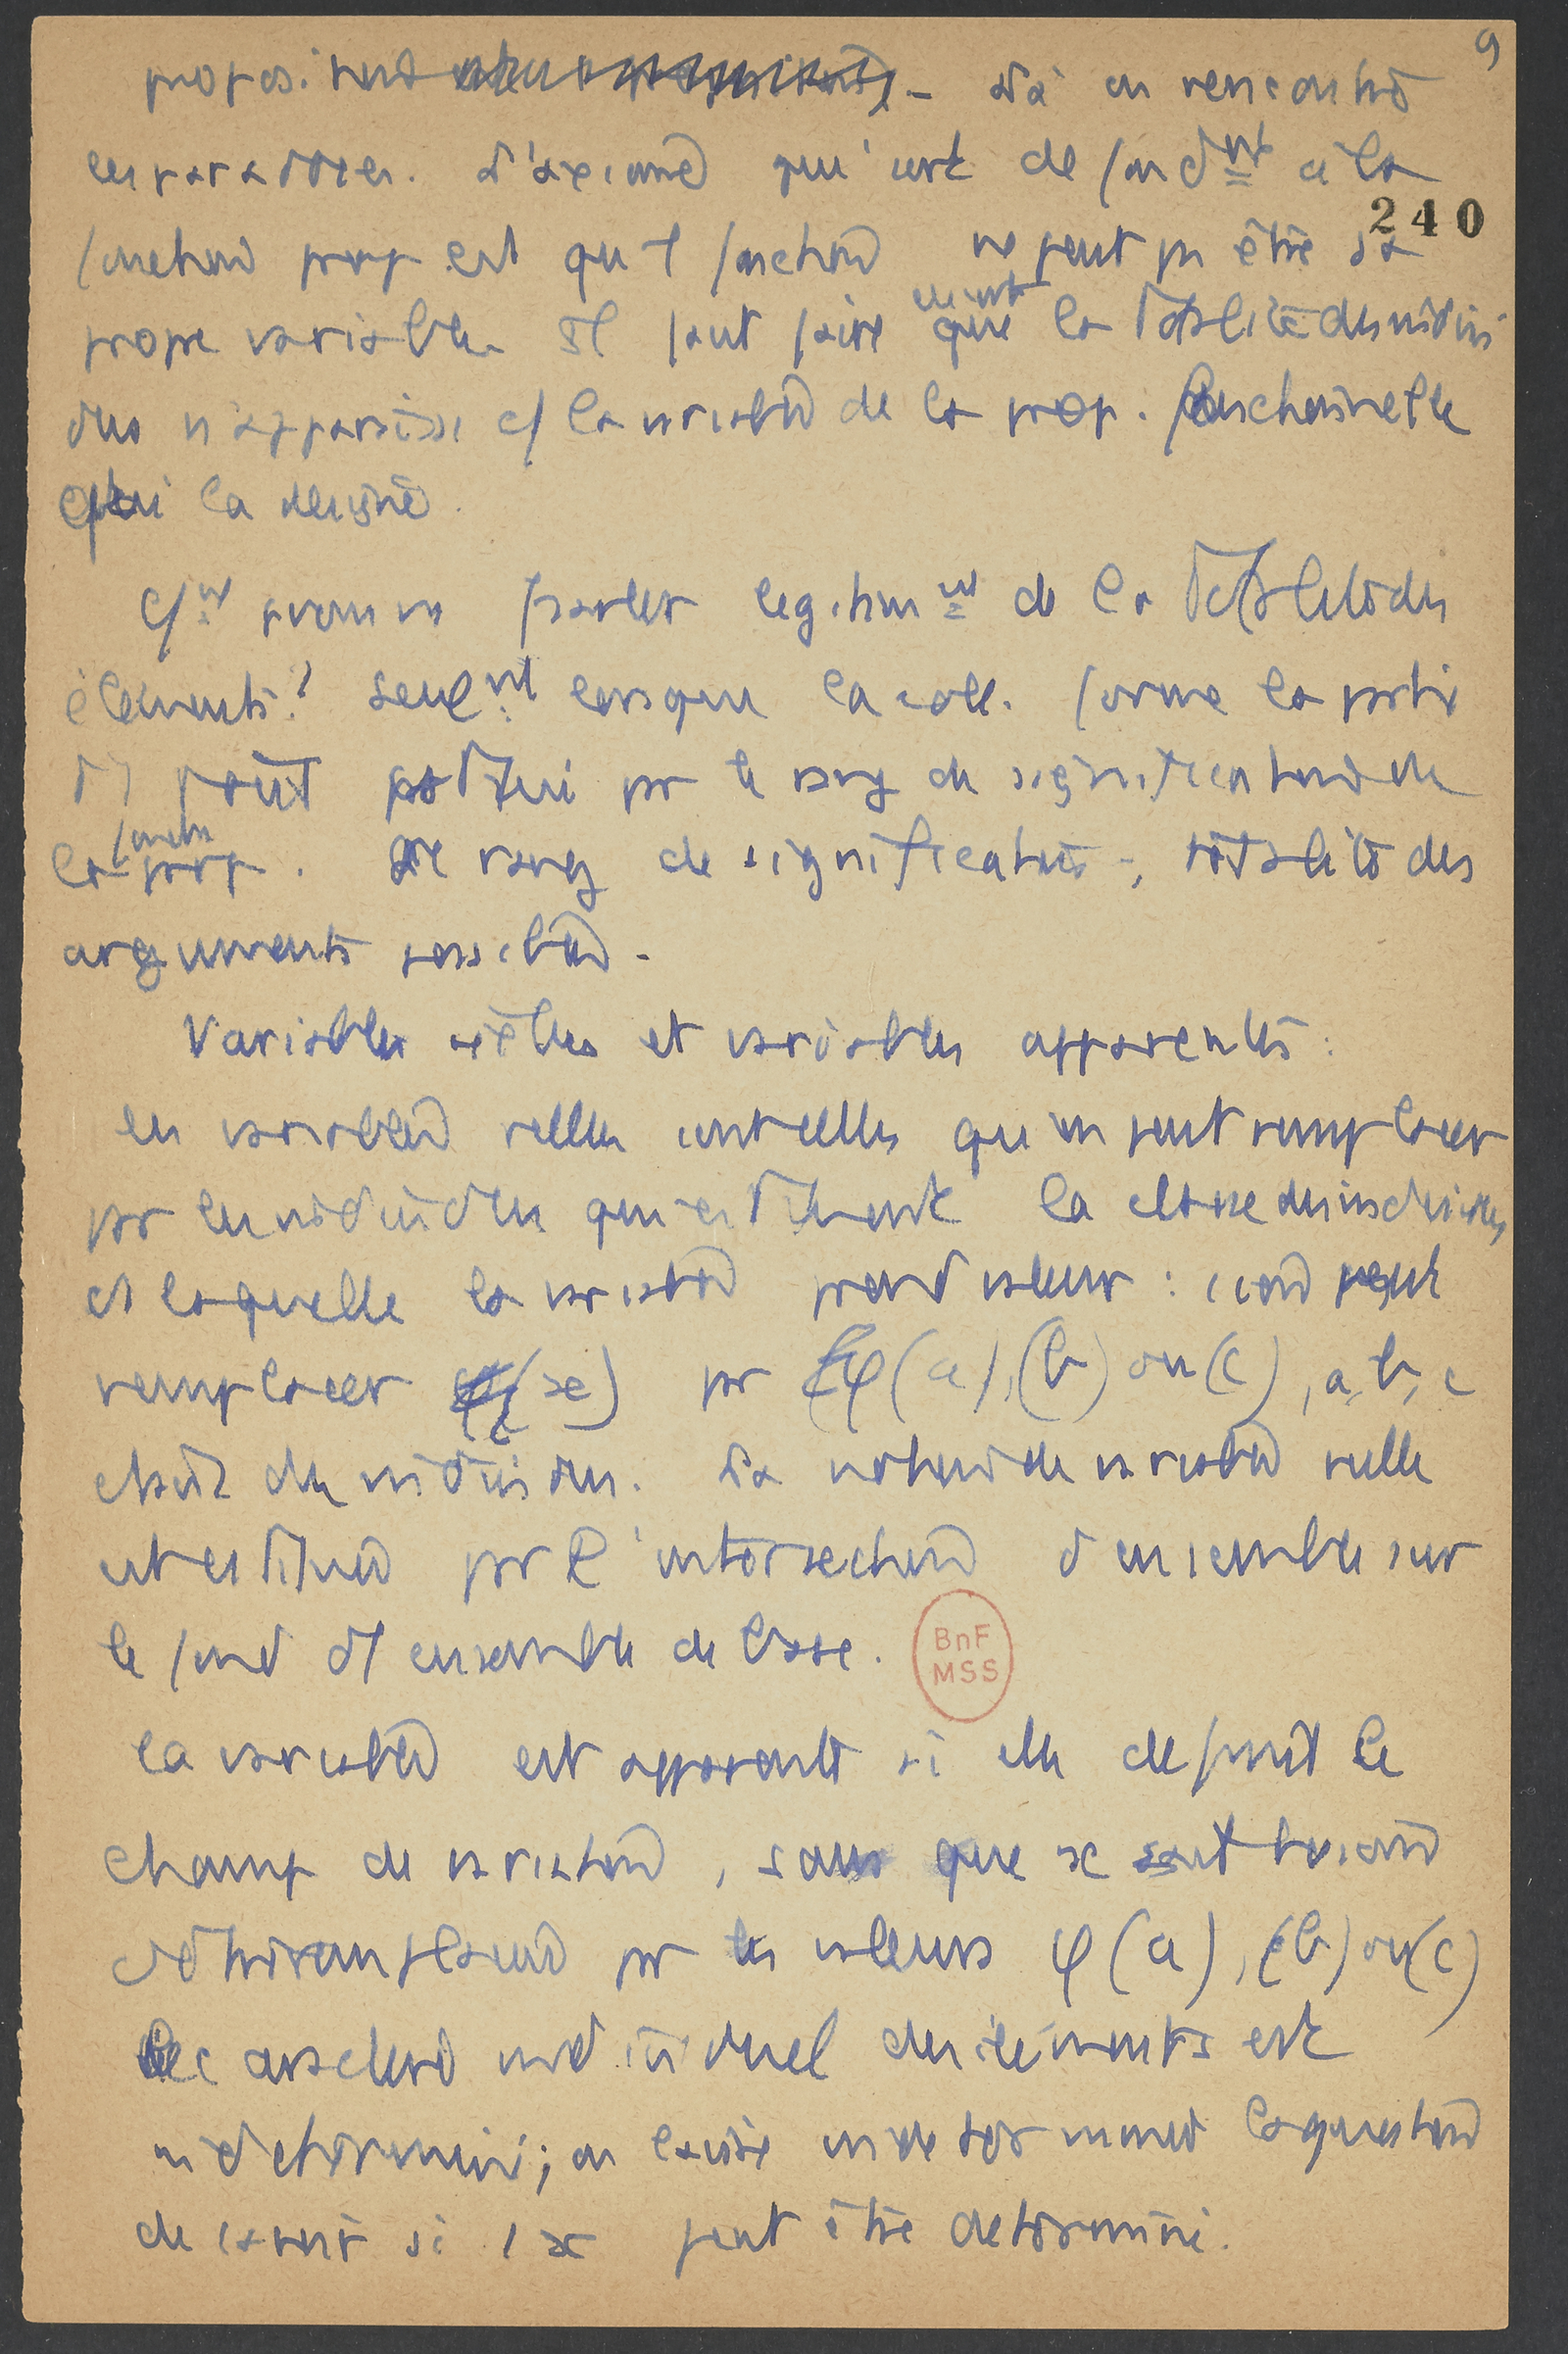 9
proposition — Là on rencontre
les paradoxes. L'axiome qui sert de fond^nt à la
240
fonction prop est qu'1 fonction ne peut pas être sa
propre variable. Il faut faire que la totalité des indivi
dus n'apparaisse c/ la variable de la prop. fonctionnelle
qui la désigne.
C/^nt pouvons parler legitim^nt de la totalité des
éléments? Seul^nt lorsque la coll. forme la partie
d'1 tout par le rang de signification de
la fonction prop. Le rang de signification =, totalité des
arguments possibles.
Variables réelles et variables apparentes :
les variables réelles sont celles qu'on peut remplacer
par les individus qui constituent la classe des individus
ds laquelle la variable prend valeur : on peut
remplacer φ(x) par φ(a), (b) ou (c), a, b, c
étant des individus. La notion de variable réelle
est constituée par l'intersection d'ensembles sur
le fond d'1 ensemble de base.
BnF
MSS
la variable est apparente si elle définit le
champ de variation, sans que x soit
par les valeurs φ(a), (b) ou (c)
Le caractère individuel des éléments est
indéterminé; on laisse indéterminée la question
de savoir si 1 x peut être déterminé.